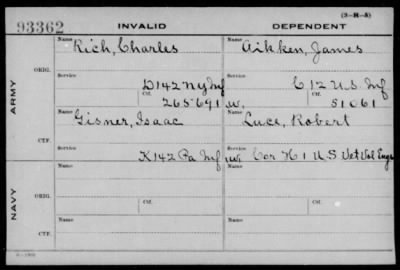 (3-R-5)
93362 INVALID DEPENDENT
Name Rich, Charles Name Aikken, James
ORIG.
Service D 142 Ny Inf Service C 12 U.S. Inf
ARMY
Ctf. 265691 W. Ctf. 51061
Name Gisner, Isaac Name Luce, Robert
CTF.
Service K 142 Pa Inf W. Service Cor H 1 U.S Vet Vol Engr
Name Ctf. Name Ctf.
ORIG.
NAVY
Name Name
CTF.